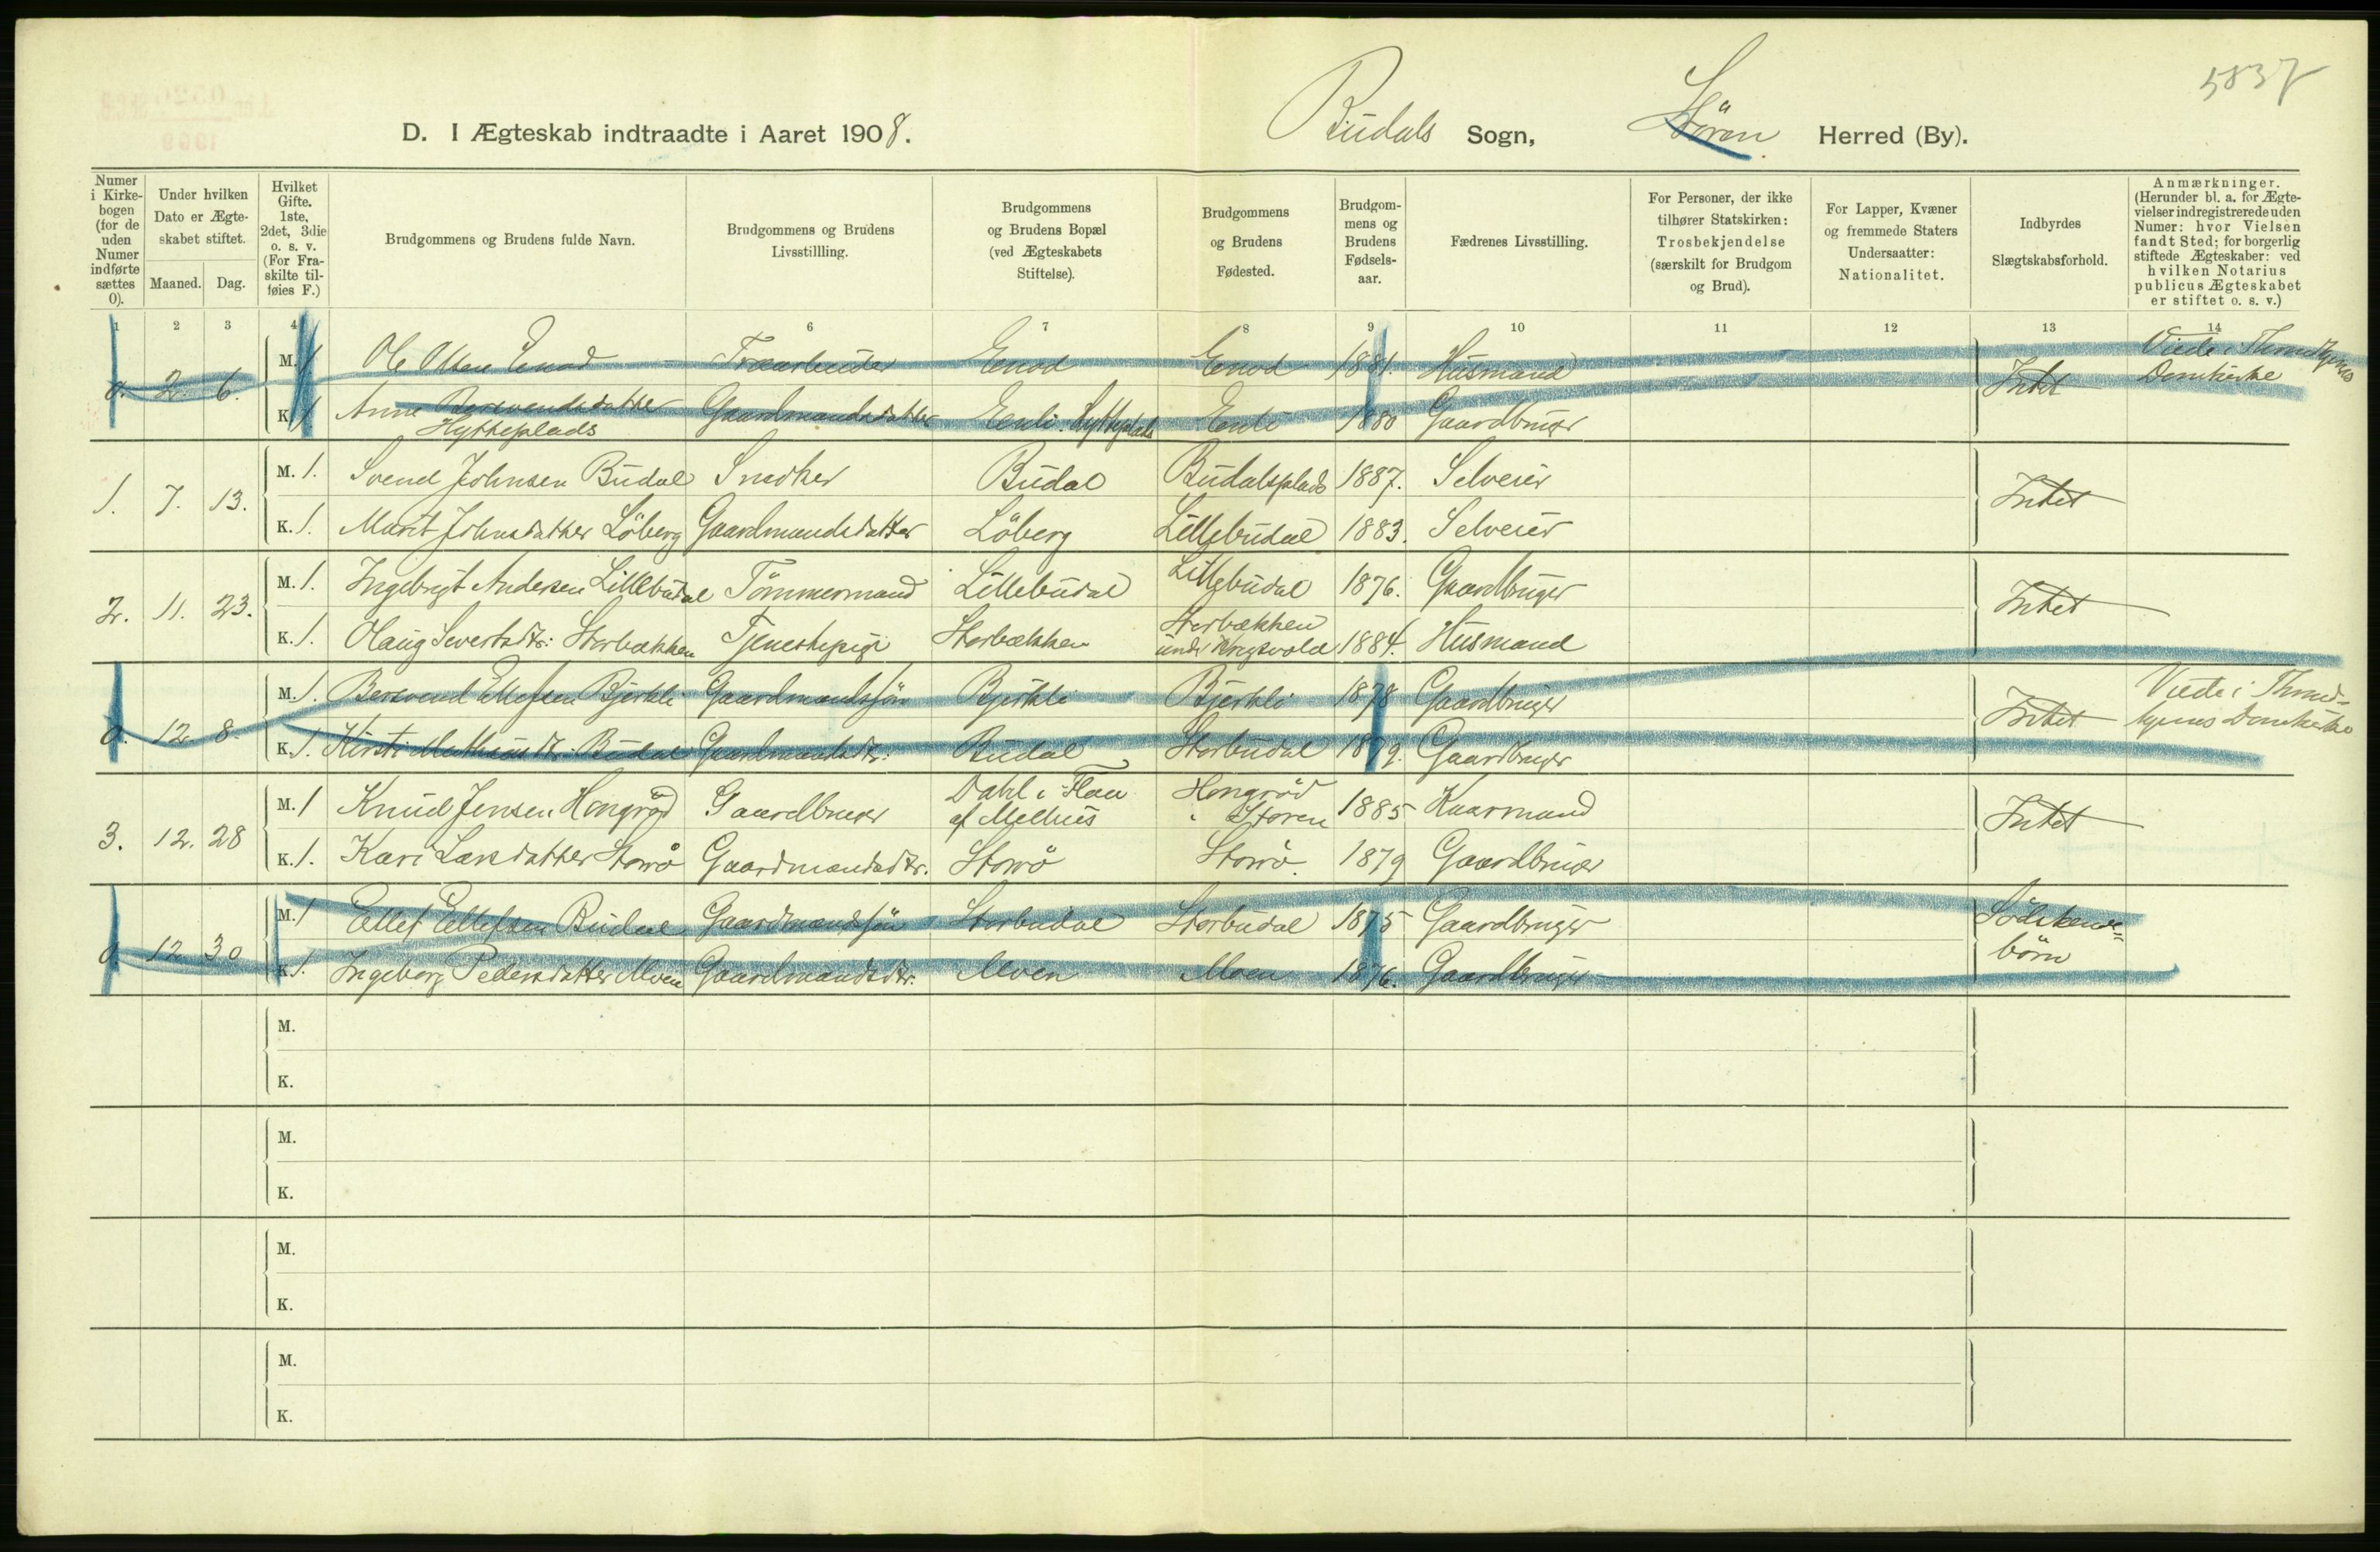 5837
D. I Ægteskab indtraadte i Aaret 1908.
Budals Sogn, Stören Herred (By).
Numer i Kirkebogen (for de uden Numer indførte sættes 0).
Under hvilken Dato er Ægteskabet stiftet.
Maaned. Dag.
Hvilket Gifte. 1ste, 2det, 3die o. s. v. (For Fraskilte tilføies F.)
Brudgommens og Brudens fulde Navn.
Brudgommens og Brudens Livsstillling.
Brudgommens og Brudens Bopæl (ved Ægteskabets Stiftelse).
Brudgommens og Brudens Fødested.
Brudgommens og Brudens Fødselsaar.
Fædrenes Livsstilling.
For Personer, der ikke tilhører Statskirken: Trosbekjendelse (særskilt for Brudgom og Brud).
For Lapper, Kvæner og fremmede Staters Undersaatter: Nationalitet.
Indbyrdes Slægtskabsforhold.
Anmærkninger. (Herunder bl. a. for Ægtevielser indregistrerede uden Numer: hvor Vielsen fandt Sted; for borgerlig stiftede Ægteskaber: ved hvilken Notarius publicus Ægteskabet er stiftet o. s. v.)
1 2 3 4 6 7 8 9 10 11 12 13 14
0. 2. 6. M. 1 Ole Olsen Enod Enod Enod 1881. Husmand Intet Viede i Throndhjems Domkirke
K. 1 Anne Bersvendsdatter Hytteplads Gaardmandsdatter Enli Hytteplads Enli 1880 Gaardbruger
1. 7. 13. M. 1. Svend Johnsen Budal Snedker Budal Budalsplads 1887. Selveier Intet
K. 1. Marit Johnsdatter Löberg Gaardmandsdatter Löberg Lillebudal 1883. Selveier
2. 11. 23. M. 1. Ingebrigt Andersen Lillebudal Tömmermand Lillebudal Lillebudal 1876. Gaardbruger Intet
K. 1. Olaug Sivertsdtr: Storbækken Tjenestepige Storbækken Storbækken under 1884. Husmand
0. 12. 8. M. 1. Bersvend Ellefsen Bjerkli Gaardmandssön Bjerkli Bjerkli 1878 Gaardbruger Intet Viede i Thrond-
hjems Domkirke
K. 1. Kirsti Budal Gaardmandsdtr: Budal Storbudal 1879. Gaardbruger
3. 12. 28 M. 1 Knud Jensen Hongröd Gaardbruger Dahl i Flaa af Melhus Hongröd i Stören 1885 Kaarmand Intet
K. 1. Kari Larsdatter Storrö Gaardmandsdtr. Storrö Storrö. 1879 Gaardbruger
0. 12 30 M. 1 Ellef Ellefsen Budal Gaardmandssön Storbudal Storbudal 1875 Gaardbruger Södskende-
börn
K. 1. Ingeborg Pedersdatter Moen Gaardmandsdtr. Moen Moen 1876. Gaardbruger
M.
K.
M.
K.
M.
K.
M.
K.